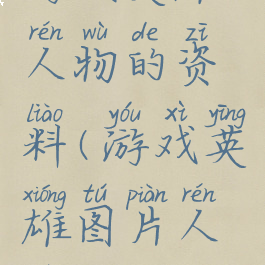 rén wù de zī
人物的资
liào yóu xì yīng
料(游戏英
xióng tú piàn rén
雄图片人